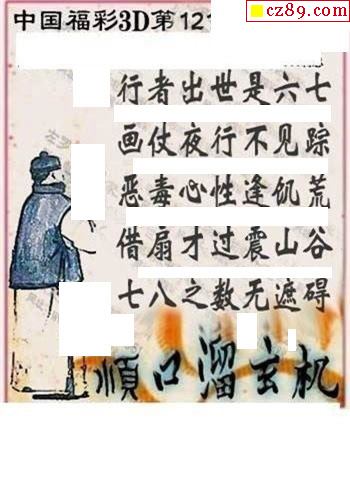 cz89.com
中国福彩3D第121
行者出世是六七
画仗夜行不见踪
恶毒心性逢饥荒
借扇才过震山谷
七八之数无遮碍
順口溜玄机